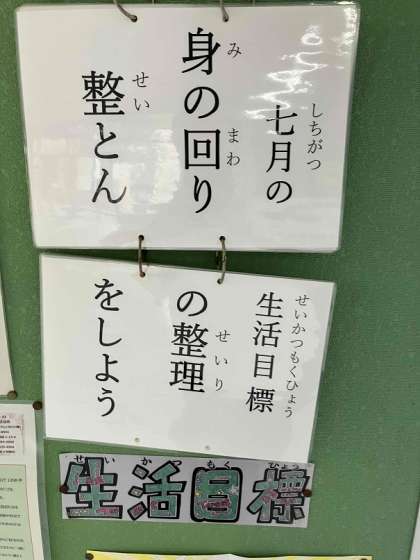 しちがつ
七月の
み まわ
身の回り
せい
整とん
せいかつもくひょう
生活目標
せいり
の整理
をしよう
せいかつもくひょう
生活目標